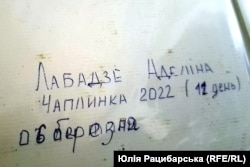 Лабадзе Аделіна
Чаплинка 2022 (12 день)
06 березня
Юлія Рацибарська (RFE/RL)